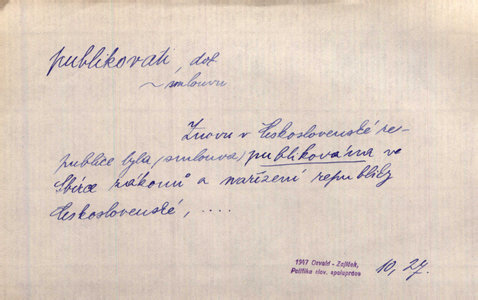 publikovati, dok
~ smlouvu
Znovu v Československé re-
publice byla (smlouva) publikována ve
Sbírce zákonů a nařízení republiky
Československé, ....
1947 Osvald - Zajíček,
Politika slov. spolupráce
10, 27.